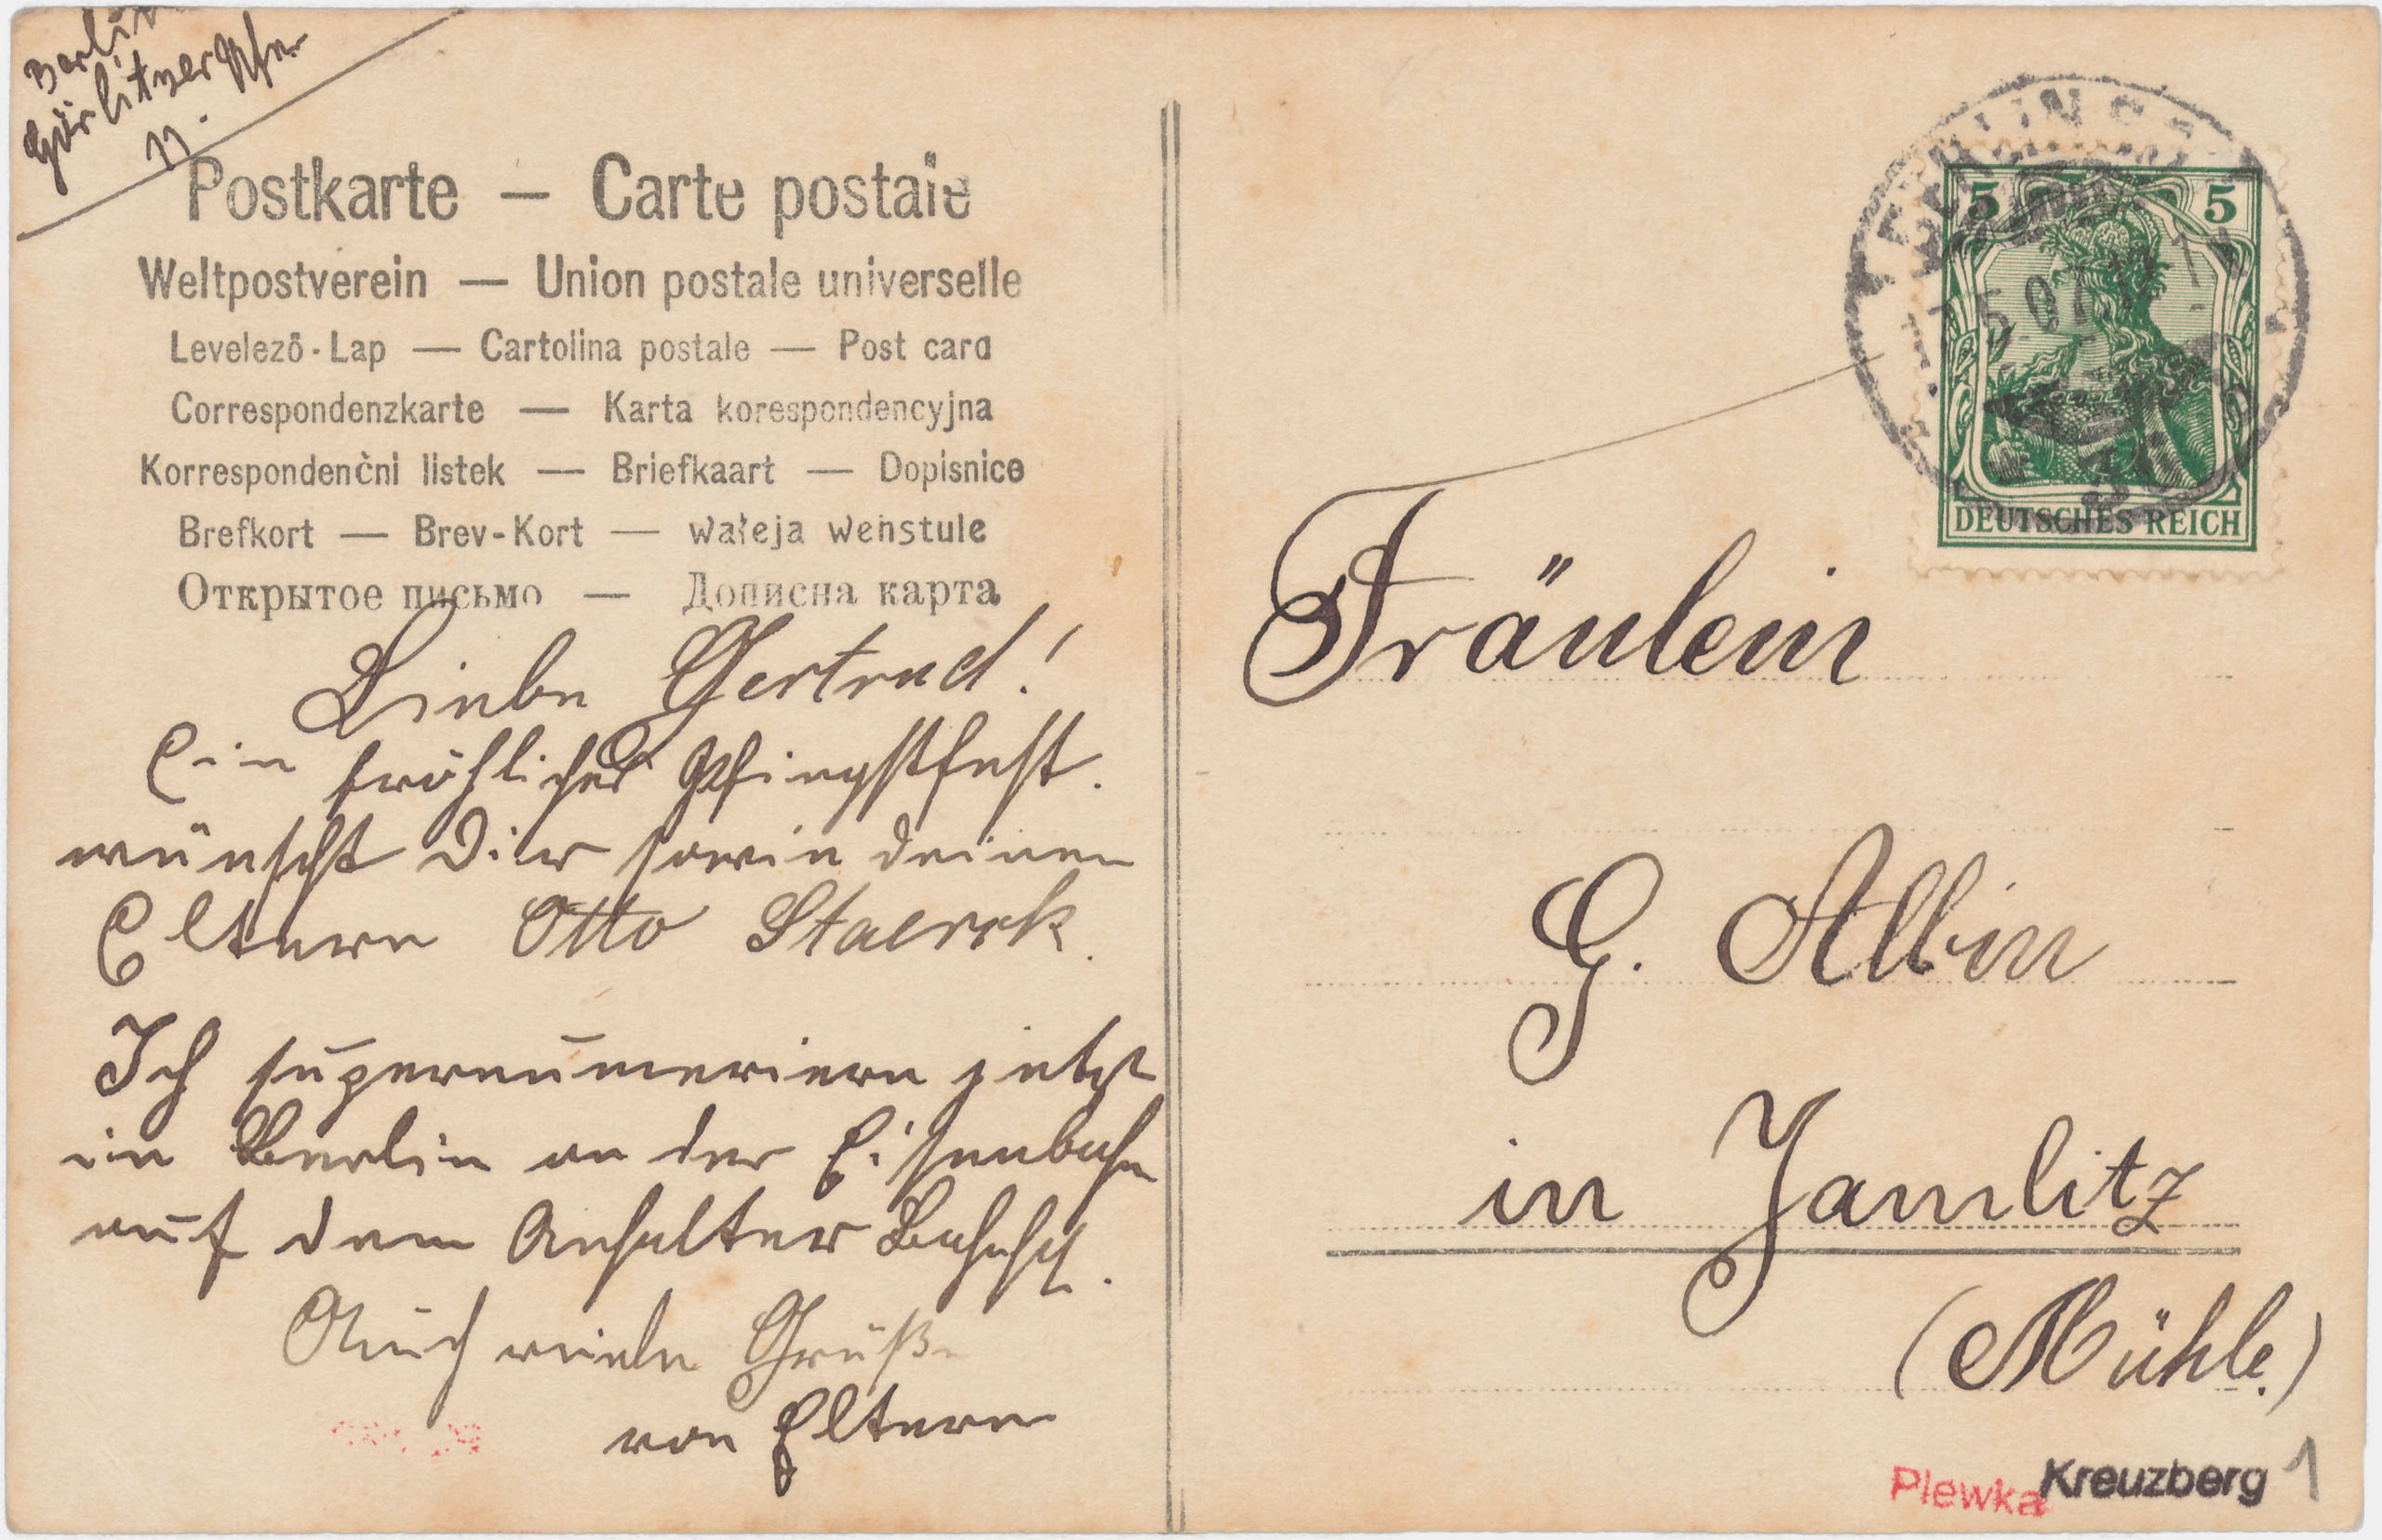 Berlin
Görlitzer Ufer
11.
Postkarte — Carte postale
Weltpostverein — Union postale universelle
Levelező-Lap — Cartolina postale — Post card
Correspondenzkarte — Karta korespondencyjna
Korrespondenčni listek — Briefkaart — Dopisnice
Brefkort — Brev-Kort — Wałeja Wenstule
Открытое письмо — Дописна карта
Liebe Gertrud!
Ein fröhliches Pfingstfest.
wünscht Dir sowie deinen
Eltern Otto Staerck.
Ich supernumeriere jetzt
in Berlin an der Eisenbahn
auf dem Anhalter Bahnhof.
Auch viele Grüße
von Eltern
BERLIN
5.07.
5 5
DEUTSCHES REICH
Fräulein
G. Albin
in Jamlitz
(Mühle.)
Plewka Kreuzberg 1